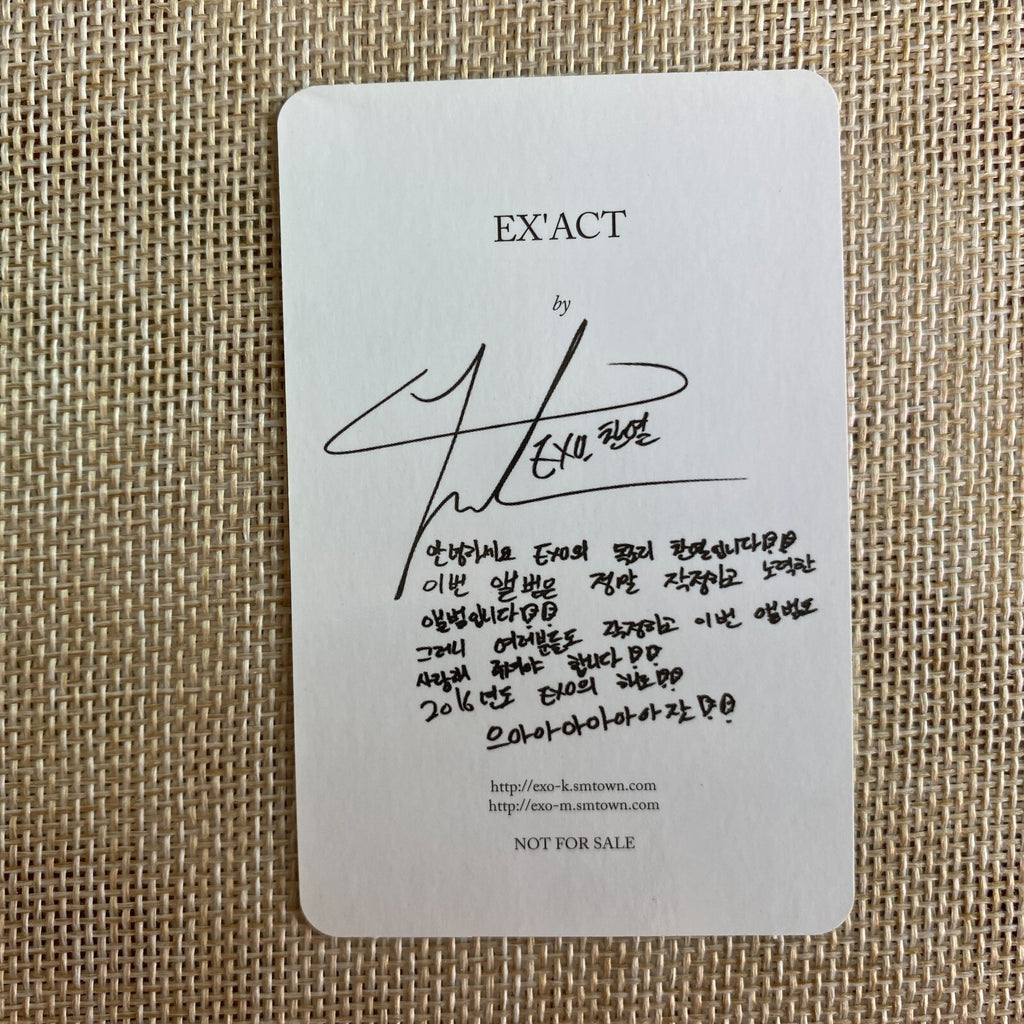 EX'ACT
by
EXO. 찬열
안녕하세요 EXO의 목소리 찬열입니다!!
이번 앨범은 정말 작정하고 노력한
앨범입니다!!
그러니 여러분들도 작정하고 이번 앨범도
사랑해 줘야 합니다!!
2016년도 EXO의 해로!!
으아아아아아아잣!!
http://exo-k.smtown.com
http://exo-m.smtown.com
NOT FOR SALE